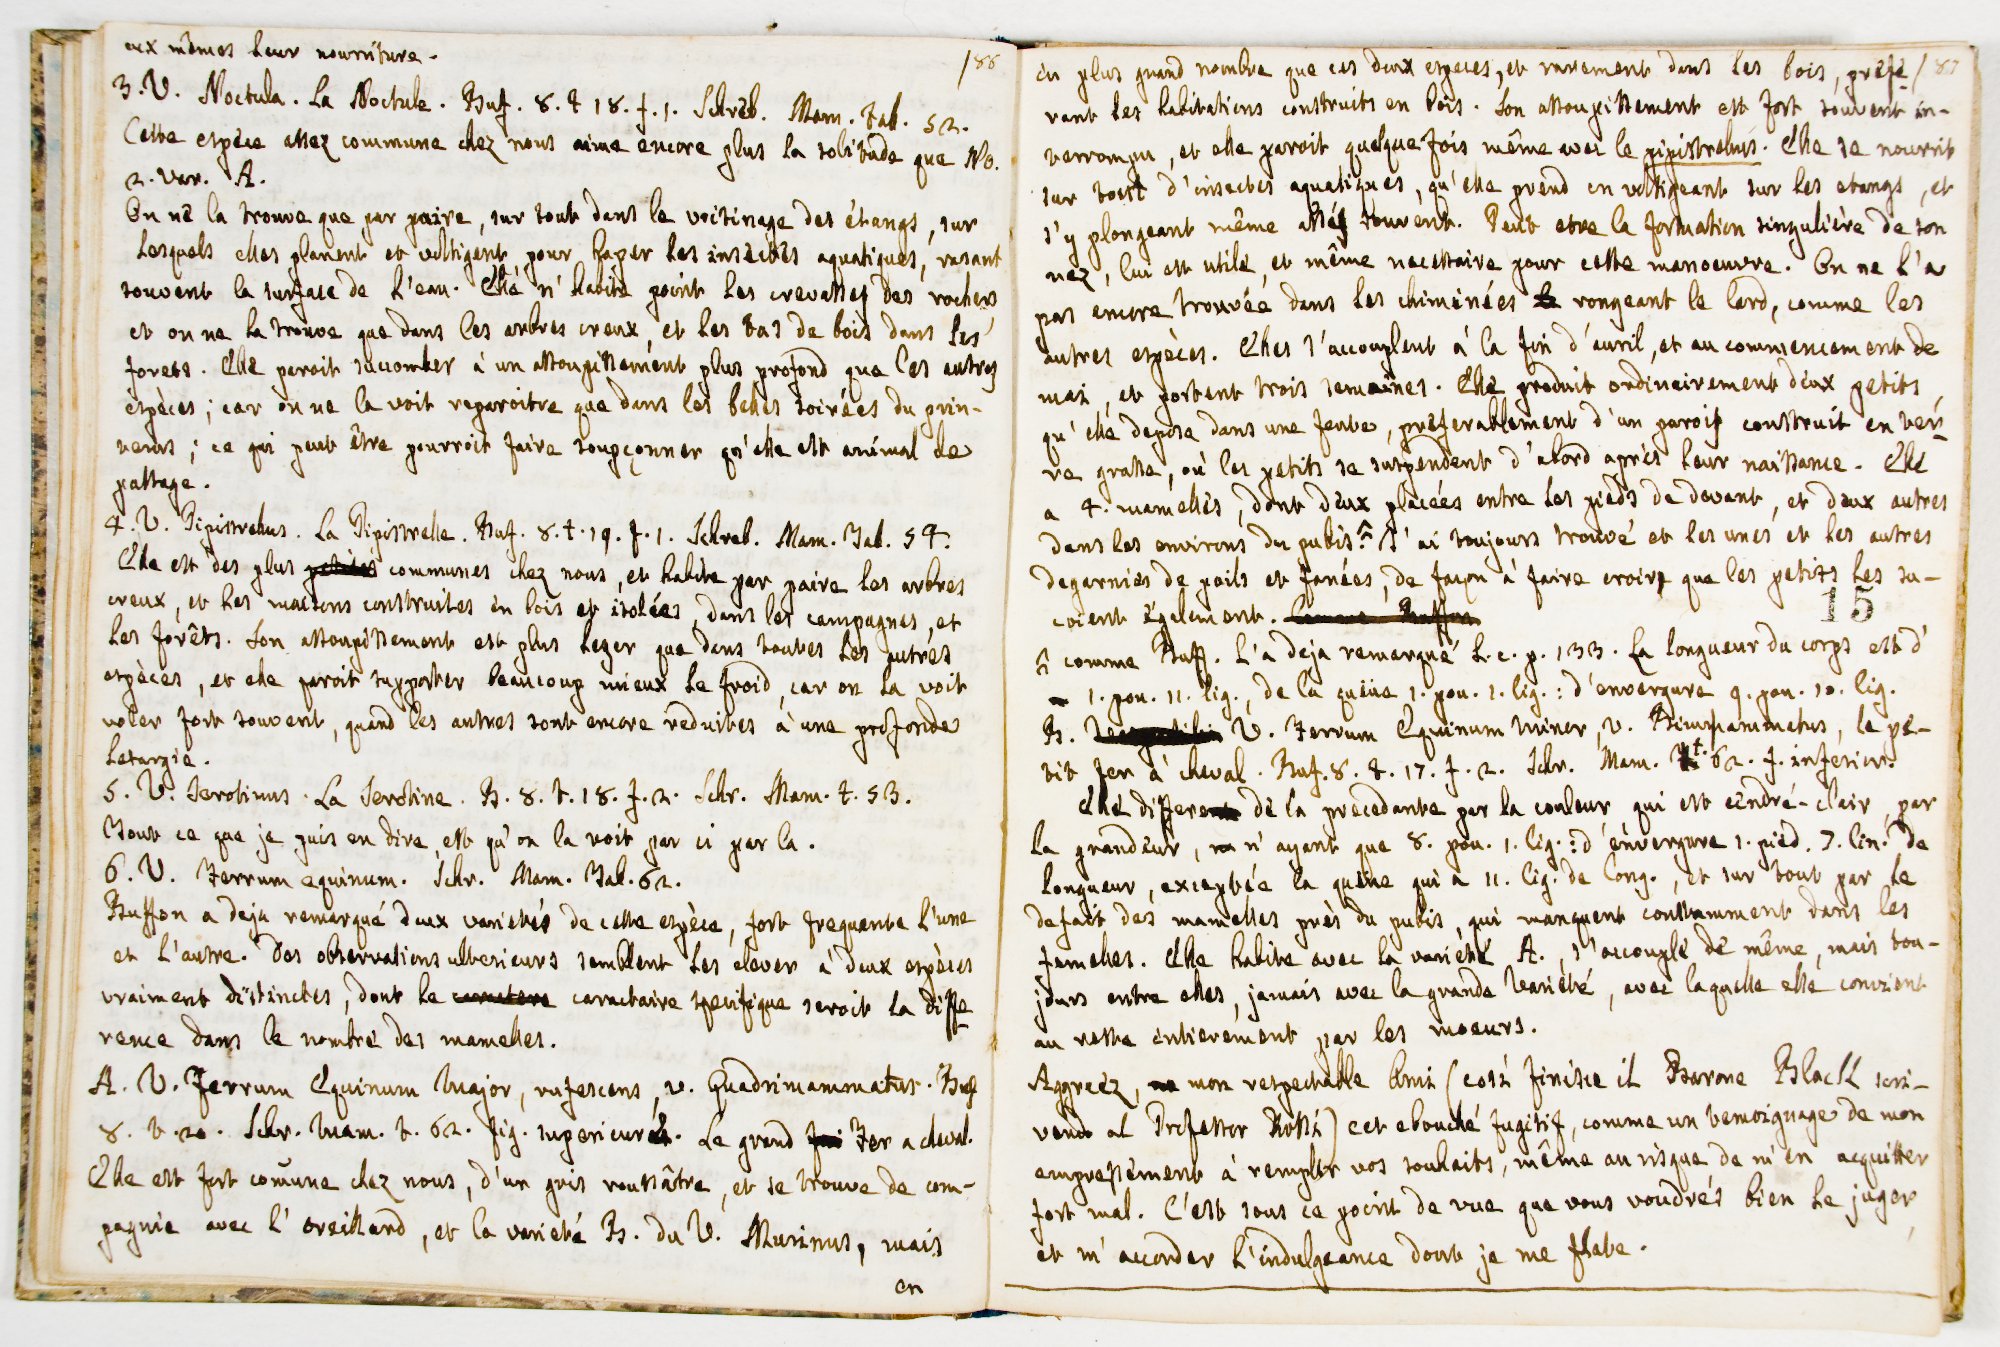 eux mêmes leur nourriture.
186
3. V. Noctula. La Noctule. Buf. 8. t 18. f. 1. Schreb. Mam. Tab. 52.
Cette espèce assez commune chez nous aime encore plus la solitude que No.
2. Var. A.
On ne la trouve que par paire, sur tout dans le voisinage des étangs, sur
lesquels elles planent et voltigent pour haper les insectes aquatiques, rasant
souvent la surface de l'eau. Elle n'habite point les crevasses des rochers
et on ne la trouve que dans les arbres creux, et les tas de bois dans les
forets. Elle paroit succomber à un assoupissement plus profond que les autres
espèces; car on ne la voit reparoitre que dans les belles soirées du prin-
tems; ce qui peut être pourroit faire soupçonner qu'elle est animal de
passage.
4. V. Pipistrellus. La Pipistrelle. Buf. 8. t. 19. f. 1. Schreb. Mam. Tab. 54.
Elle est des plus petites communes chez nous, et habite par paire les arbres
creux, et les maisons construites en bois et isolées, dans les campagnes, et
les forêts. Son assoupissement est plus leger que dans toutes les autres
espèces, et elle paroit supporter beaucoup mieux le froid, car on la voit
voler fort souvent, quand les autres sont encore reduites à une profonde
letargie.
5. V. Serotinus. La Serotine. B. 8. t. 18. f. 2. Schr. Mam. t. 53.
Tout ce que je puis en dire, est qu'on la voit par ci par la.
6. V. Ferrum equinum. Schr. Mam. Tab. 62.
Buffon a deja remarqué deux varietés de cette espèce, fort frequente l'une
et l'autre. Des observations ulterieurs semblent les elever à deux espèces
vraiment distinctes, dont le caractere caractaire specifique seroit la diffe
rence dans le nombre des mamelles.
A. V. Ferrum Equinum Major, rufescens, v. Quadrimammatus. Buf
8. t. 20. Schr. Mam. t. 62. fig. superieure. Le grand Fer a cheval.
Elle est fort comune chez nous, d'un gris roussâtre, et se trouve de com-
pagnie avec l'oreillard, et la varieté B. du V. Murinus, mais
en
en plus grand nombre que ces deux especes, et rarement dans les bois, préfé
187
rant les habitations construits en bois. Son assoupissement est fort souvent in-
terrompu, et elle paroit quelque fois même avec le pipistrellus. Elle se nourrit
sur tout d'insectes aquatiques, qu'elle prend en voltigeant sur les etangs, et
s'y plongeant même assés souvent. Peut etre la formation singulière de son
nez, lui est utile, et même necessaire pour cette manoeuvre. On ne l'a
pas encore trouvée dans les chiminées rongeant le lard, comme les
autres espèces. Elles s'accouplent à la fin d'avril, et au commencement de
mai, et portent trois semaines. Elle produit ordinairement deux petits,
qu'elle depose dans une fente, preferablement d'un parois construit en ter
re grasse, où les petits se suspendent d'abord après leur naissance. Elle
a 4. mamelles, dont deux placées entre les pieds de devant, et deux autres
dans les environs du pubis. J'ai toujours trouvé et les unes et les autres
degarnies de poils et fanées, de façon à faire croire que les petits les su-
coient également. Comme Buffon
15
comme Buff. l'a deja remarqué l. c. p. 133. La longueur du corps est d'
1. pou. 11. lig., de la queue 1. pou. 1. lig.: d'envergure 9. pou. 10. lig.
B. V. Ferrum Equinum minor, v. Bimammatus, le pe-
tit fer à cheval. Buf. 8. t. 17. f. 2. Schr. Mam. t. 62. f. inferieur.
Elle differe de la precedante par la couleur qui est cendré-clair, par
la grandeur, n'ayant que 8. pou. 1. lig.: d'envergure 1. pied. 7. lin. de
longueur, exceptée la queue qui a 11. lig. de long., et sur tout par le
defait des mamelles près du pubis, qui manquent constamment dans les
femelles. Elle habite avec la varieté A., s'accouple de même, mais tou-
jours entre elles, jamais avec la grande Varieté, avec laquelle elle convient
au reste entierement par les moeurs.
Aggreéz, mon respectable Ami (così finisce il Barone Block scri-
vendo al Professor Rossi) cet ebouché fugitif, comme un temoignage de mon
empressément à remplir vos souhaits, même au risque de m'en acquitter
fort mal. C'est sous ce point de vue que vous voudrés bien le juger,
et m'accorder l'indulgeance dont je me flate.